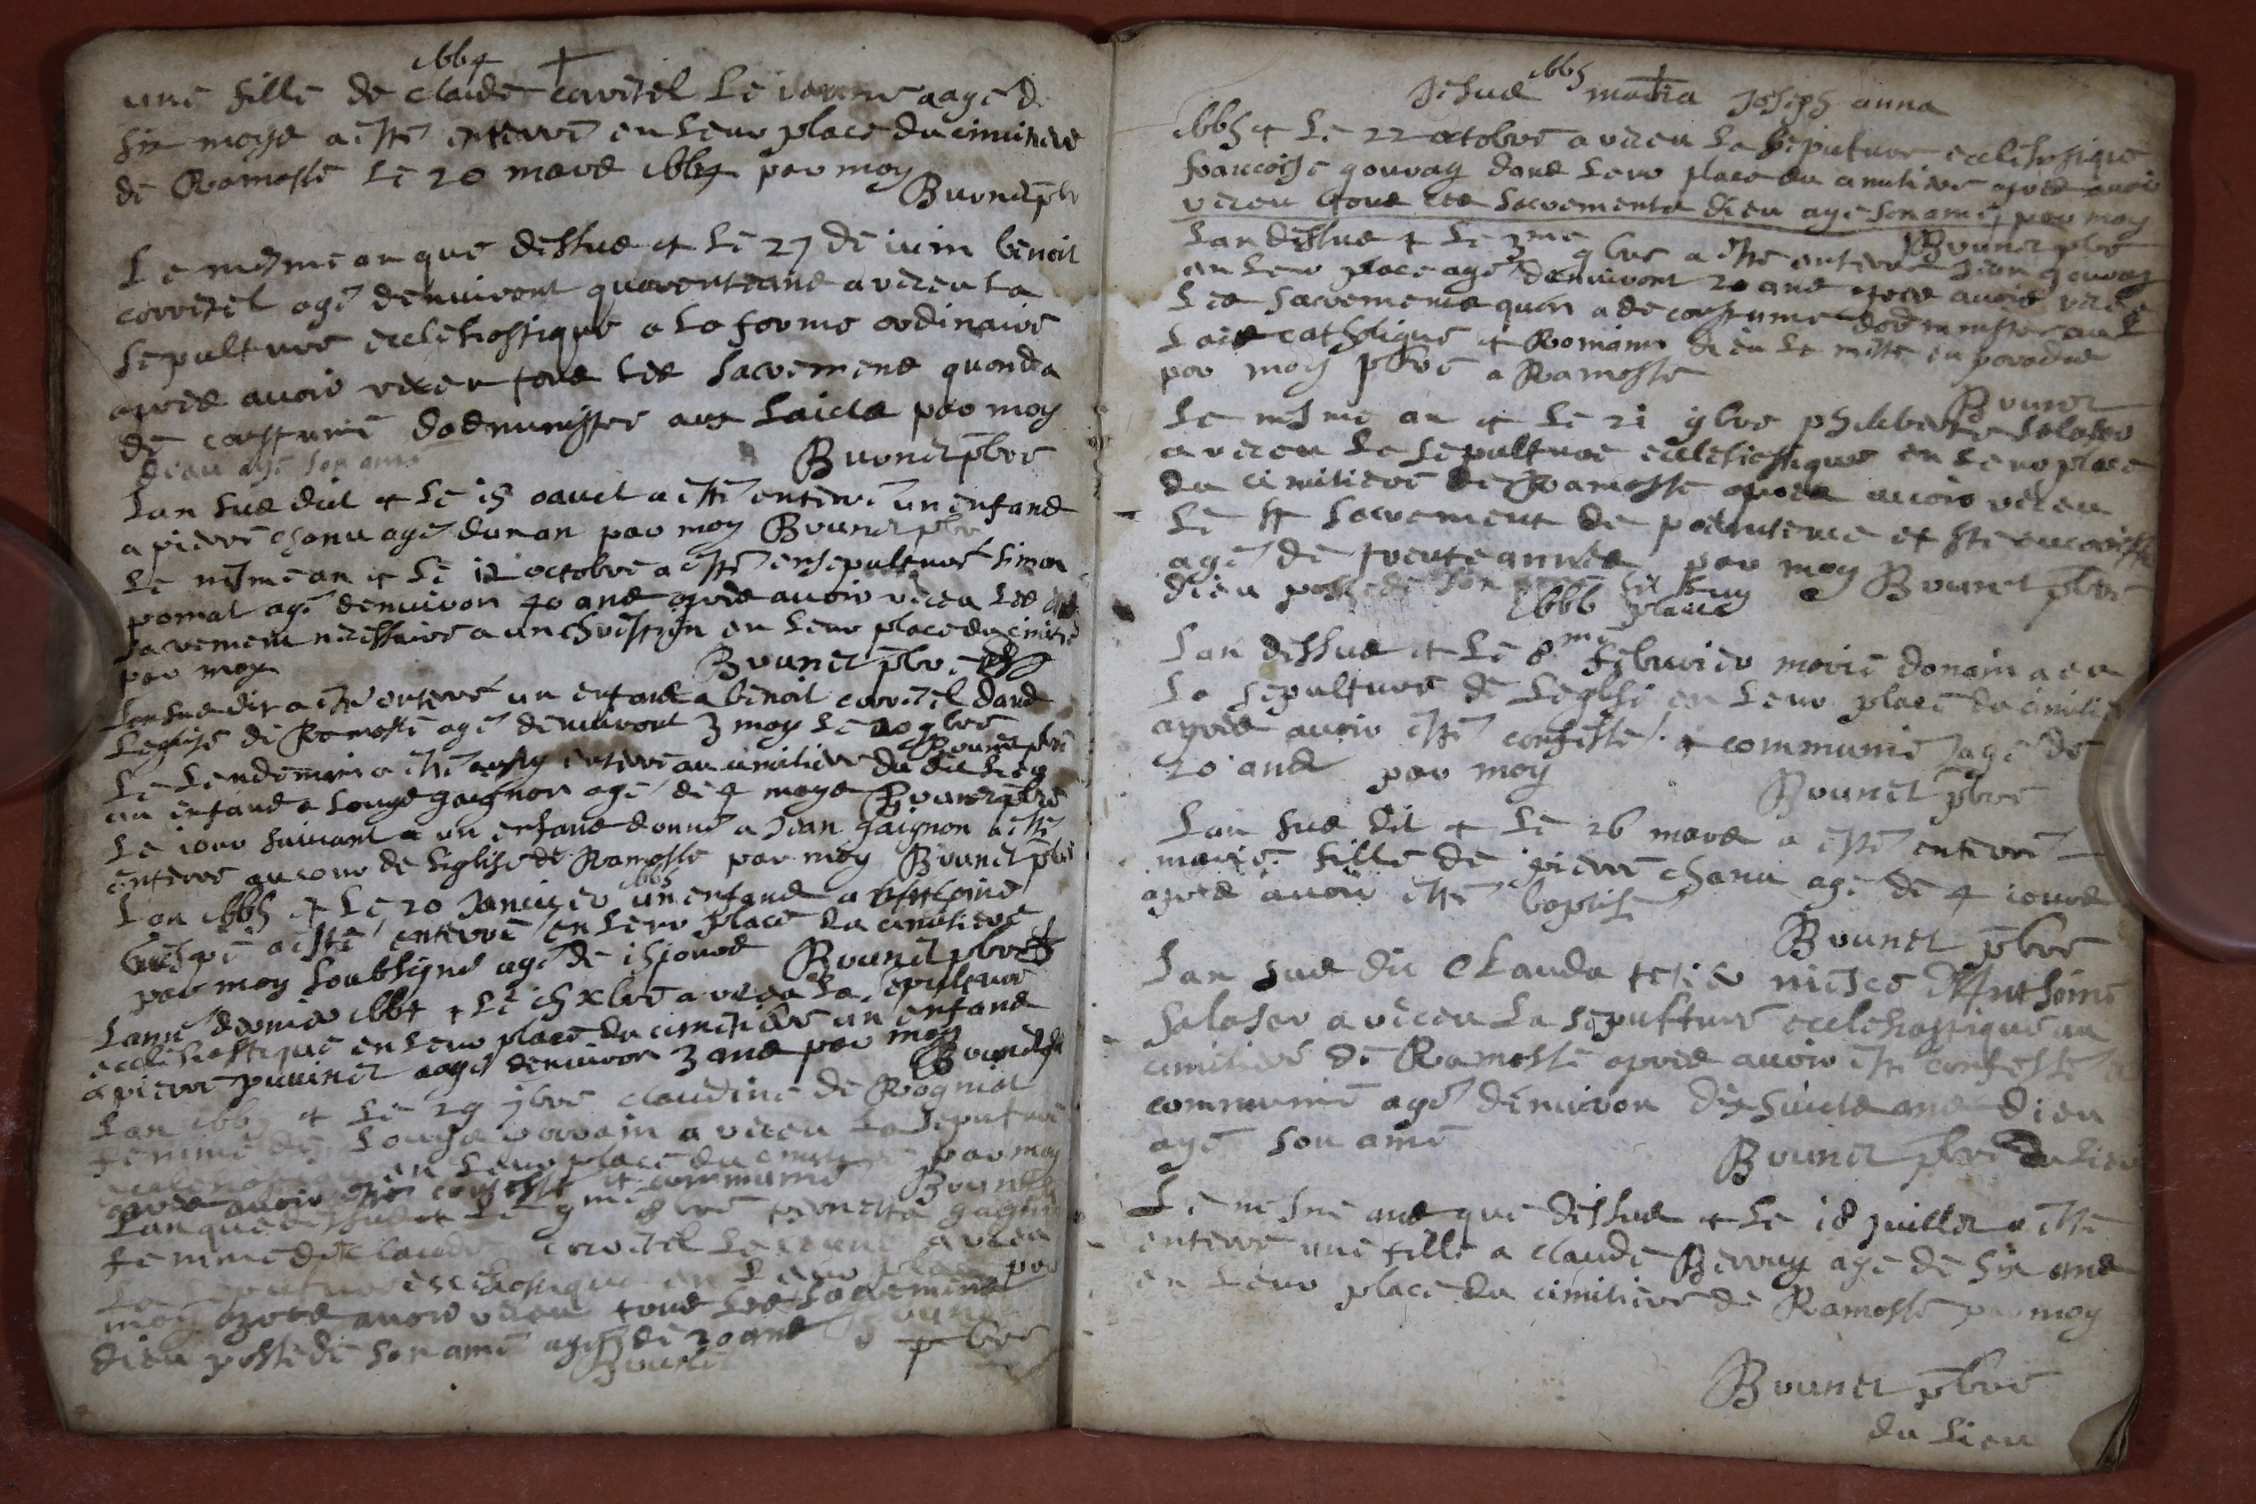 1664 +
une fille de claude corretel le jeune aage de
six moys a esté enterré en leur place du cimitiere
de Ramasse le 20 mars 1664 par moy
Brunet pbr
Le mesme an que dessus et le 27 de iuin benoit
corretel agé denuiront quarente ans a receu la
sepulture ecclesiastique a la forme ordinaire
apres avoir receu tous les sacremens quond a
de coustume dadminister aux laics par moy
dieu aye son ame
Brunet pbre
Lan sus dict et le 15 aoust a esté enterré un enfans
a pierre chanu agé dun an par moy Brunet pbr
Le mesme an et le 12 octobre a esté ensepulturé simon
pomat agé denuiron 40 ans apres avoir receu les
sacremens necessaire a un chrestien en leur place du cimitie
par moy
Brunet pbre
Lan sus dit a esté enterré un enfans a benoit corretel dans
leglise de Ramasse agé denuiront 3 moy le 20 9bre
Brunet pbre
Le lendemain a esté enterré au cimitiere du dit lieu
un enfans a gaignon agé de 4 moys Brunet pbre
Le iour suivant a un enfans donné a Jean gaignon a esté
enterré au cour de leglise de Ramasse par moy Brunet pbr
1665
Lan 1665 et le 20 Januier un enfans a Anthoine
a esté enterré en leur place du cimitiere
par moy soubsigné agé de 15 jours Brunet pbre
Lanne dernier 1664 et le 15 xbre a receu la sepulture
ecclesiastique en leur place du cimitiere un enfans
a pierre puvinet aagé denuiron 3 ans par moy
Brunet
Lan 1665 et le 29 7bre claudine de Rogniat
femme de varrain a receu la sepulture
en leur place du cimitiere par moy
apres avoir esté confessé et communié Brunet
Lan que dessus et le 9me 8bre pernette gagnon
femme de claude corretel le jeune a receu
la sepulture ecclesiastique en leur place par
moy apres avoir receu tous les sacremens
dieu possede son ame agé de 20 ans Brunet pbre
Brunet
1665 +
Jesus maria Joseph anna
1665 et le 22 octobre a receu la sepulture ecclesiastique
francoise gouvag dans leur place du cimitiere apres avoir
receu tous les sacrements dieu aye son ame par moy
Brunet pbre
Lan dessus et le 3me 9bre a esté enterré Jean gouvag
en leur place agé denuiront 20 ans apres avoir receu
les sacremens quon a de coustume dadminister aux
laics catholique et Romains dieu le mette en paradis
par moy pbre a Ramasse
Brunet
Le mesme an et le 21 9bre philiberte salaser
a receu la sepulture ecclesiastique en leur place
du cimitiere de Ramasse apres avoir receu
le st sacrement de penitence et ste eucaristie
agé de trente année par moy Brunet pbre
dieu possede son ame sil luy plaict
1666
Lan dessus et le 8me februier marie donain a eu
la sepulture de leglise en leur place du cimitie
apres avoir esté confessé et communié agé de
20 ans par moy
Brunet pbre
Lan sus dit et le 26 mars a esté enterré
marie fille de pierre chanu agé de 4 iours
apres avoir esté baptisé
Brunet pbre
Lan sus dit Clauda niesce Anthoine
salaser a receu la sepulture ecclesiastique au
cimitiere de Ramasse apres avoir esté confessé et
communié agé denuiron dix huict ans dieu
aye son ame
Brunet pbre du lieu
Le mesme ans que dessus et le 18 juillet a esté
enterré une fille a claude Berruy agé de six ans
en leur place du cimitiere de Ramasse par moy
Brunet pbre
du lieu